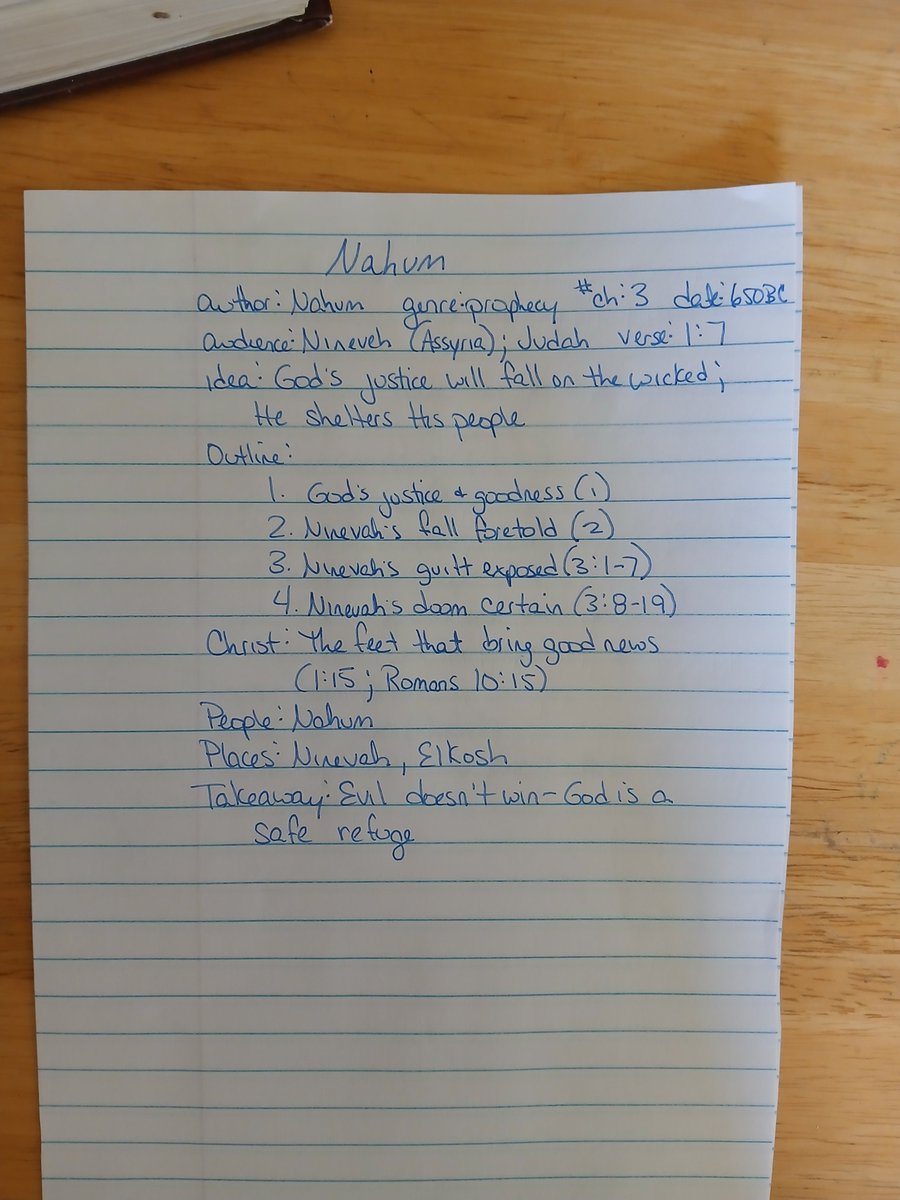 Nahum
author: Nahum genre: prophecy #ch: 3 date: 650BC
audience: Nineveh (Assyria); Judah verse: 1:7
idea: God's justice will fall on the wicked;
He shelters His people
Outline:
1. God's justice & goodness (1)
2. Ninevah's fall foretold (2)
3. Ninevah's guilt exposed (3:1-7)
4. Ninevah's doom certain (3:8-19)
Christ: The feet that bring good news
(1:15; Romans 10:15)
People: Nahum
Places: Ninevah, Elkosh
Takeaway: Evil doesn't win - God is a
safe refuge